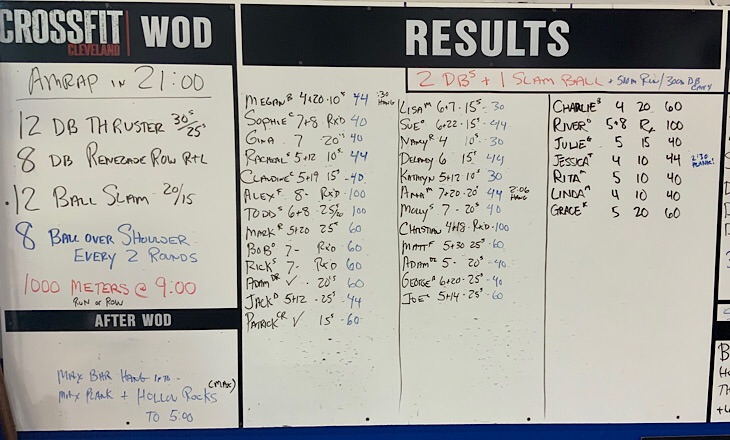 CROSSFIT
CLEVELAND
WOD
AMRAP IN 21:00
12 DB THRUSTER 30s/25s
8 DB RENEGADE ROW R+L
12 BALL SLAM 20/15
8 BALL OVER SHOULDER
EVERY 2 ROUNDS
1000 METERS @ 9:00
RUN OR ROW
AFTER WOD
MAX BAR HANG INTO
MAX PLANK + HOLLOW ROCKS (MAX)
TO 5:00
RESULTS
2 DBs + 1 SLAM BALL + 500M RUN/300M DB CARRY
MEGAN B 4+20 · 10s 44 :30 HANG
SOPHIE C 7+8 RxD 40
GINA 7 20s 40
RACHEL 5+12 10s 44
CLAUDINE 5+19 15s 40
ALEX F 8 - RxD - 100
TODD S 6+8 · 25s/20 100
MARK R 5+20 25s 60
BOB D 7 - RxD 60
RICK S 7 - RxD 60
ADAM DR ✓ - 20s 60
JACK D 5+12 - 25s - 44
PATRICK CR ✓ 15s - 60
LISA M 6+7 · 15s - 30
SUE 6+22 · 15s - 44
NANCY R 4 10s - 30
DELANEY 6 15s 44
KATHRYN 5+12 10s 30
ANNA M 7+20 - 20s 44 2:06 HANG
MOLLY S 7 - 20s 40
CHRISTIAN 4+18 · RxD - 100
MATT F 5+30 25s 60
ADAM DZ 5 - 20s - 40
GEORGE 6+20 - 25s - 40
JOE 5+14 - 25s - 60
CHARLIE B 4 20 60
RIVER 5+8 Rx 100
JULIE G 5 15 40
JESSICA T 4 10 44 2:30 PLANK!
RITA M 5 10 40
LINDA M 4 10 40
GRACE K 5 20 60